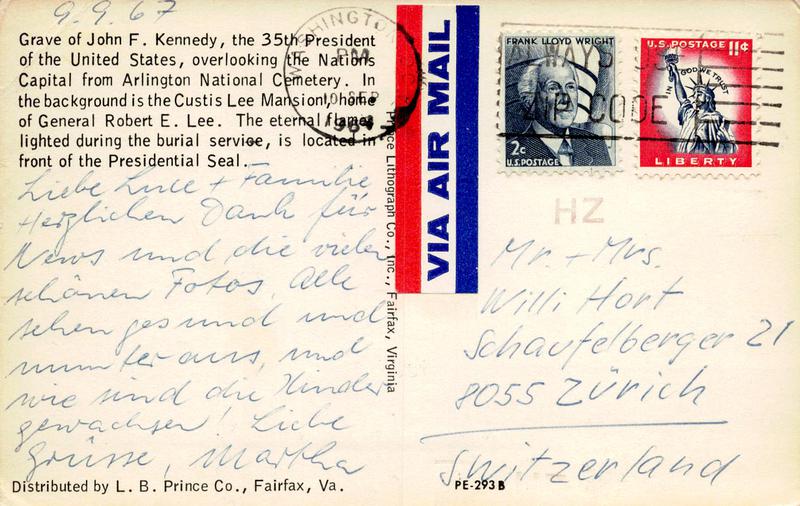 9.9.67
Grave of John F. Kennedy, the 35th President
of the United States, overlooking the Nations
Capital from Arlington National Cemetery. In
the background is the Custis Lee Mansion, home
of General Robert E. Lee. The eternal flame,
lighted during the burial service, is located in
front of the Presidential Seal.
Liebe Luce + Familie
Herzlichen Dank für
News und die vielen
schönen Fotos. Alle
sehen gesund und
munter aus, und
wie sind die Kinder
gewachsen! Liebe
Grüsse, Martha
Distributed by L. B. Prince Co., Fairfax, Va.
Prince Lithograph Co., Inc., Fairfax, Virginia
VIA AIR MAIL
WASHINGTON
10 SEP
ZIP CODE
FRANK LLOYD WRIGHT
2c
U.S. POSTAGE
U.S. POSTAGE 11¢
IN GOD WE TRUST
LIBERTY
HZ
Mr. + Mrs.
Willi Hort
Schaufelberger 21
8055 Zürich
Switzerland
PE-293B